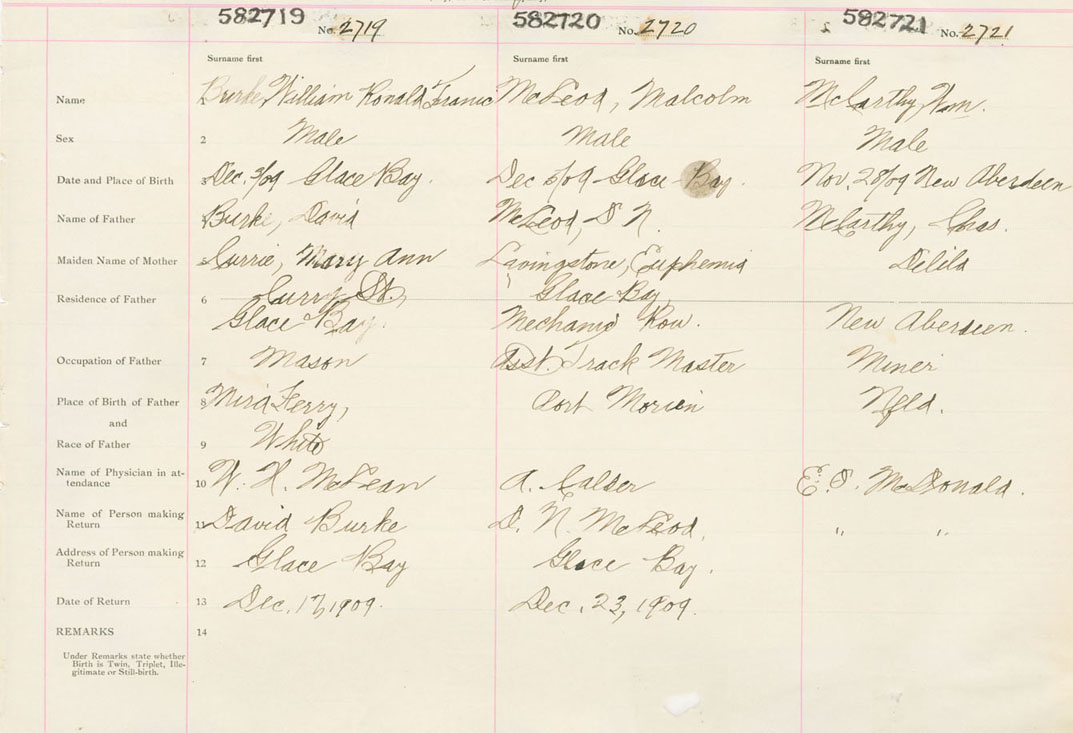 582719 582720 582721
No. 2719 No. 2720 No. 2721
Surname first Surname first Surname first
Name 1 Burke, William Ronald Francis McLeod, Malcolm McCarthy, Wm.
Sex 2 Male Male Male
Date and Place of Birth 3 Dec. 3/09 Glace Bay. Dec 5/09 Glace Bay. Nov. 28/09 New Aberdeen
Name of Father 4 Burke, David McLeod, D N. McCarthy, Chas.
Maiden Name of Mother 5 Currie, Mary Ann Lavingstone, Euphemia Delila
Residence of Father 6 Curry St, Glace Bay,
Glace Bay. Mechanic Row. New Aberdeen.
Occupation of Father 7 Mason Asst. Track Master Miner
Place of Birth of Father 8 Mira Ferry, Port Morien Nfld.
and
Race of Father 9 White
Name of Physician in at-
tendance 10 W. H. McLean A. Calder E. S. McDonald.
Name of Person making
Return 11 David Burke D. N. McLeod, " "
Address of Person making
Return 12 Glace Bay Glace Bay.
Date of Return 13 Dec. 17, 1909. Dec. 23, 1909.
REMARKS 14
Under Remarks state whether
Birth is Twin, Triplet, Ille-
gitimate or Still-birth.